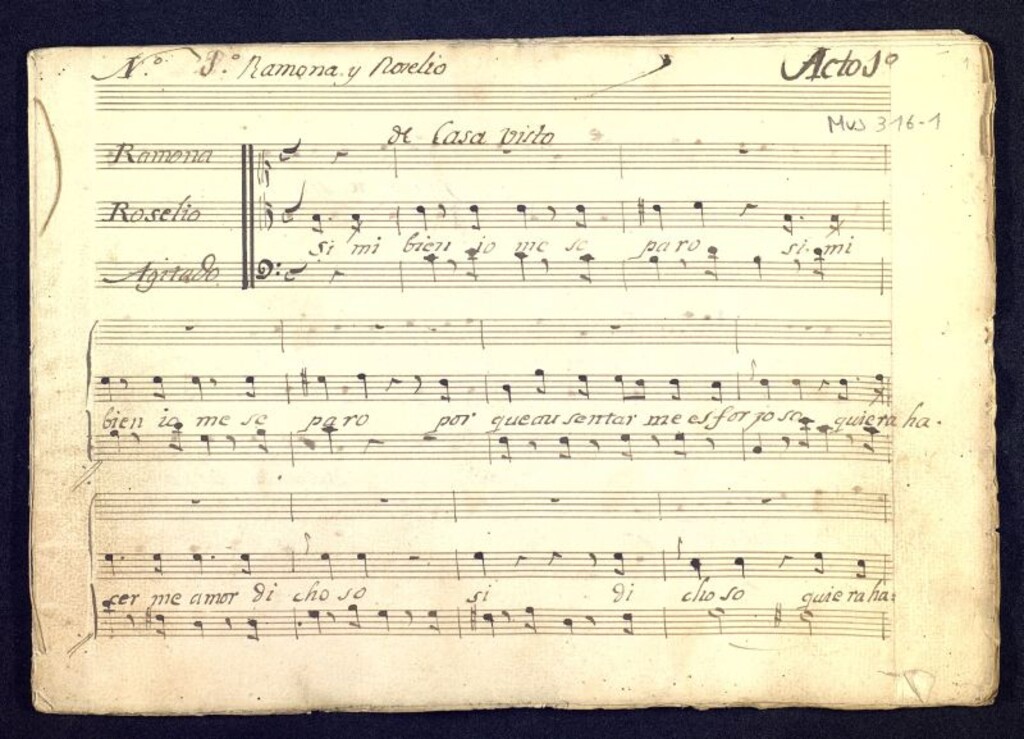 N.º 1.º Ramona y Roselio Acto 1º
Mus 316-1
de Casa visto
Ramona
Roselio
si mi bien io me se paro si mi
Agitado
bien io me se paro por que au sentar me es for zo so quie ra ha-
cer me amor di cho so si di cho so quie ra ha: